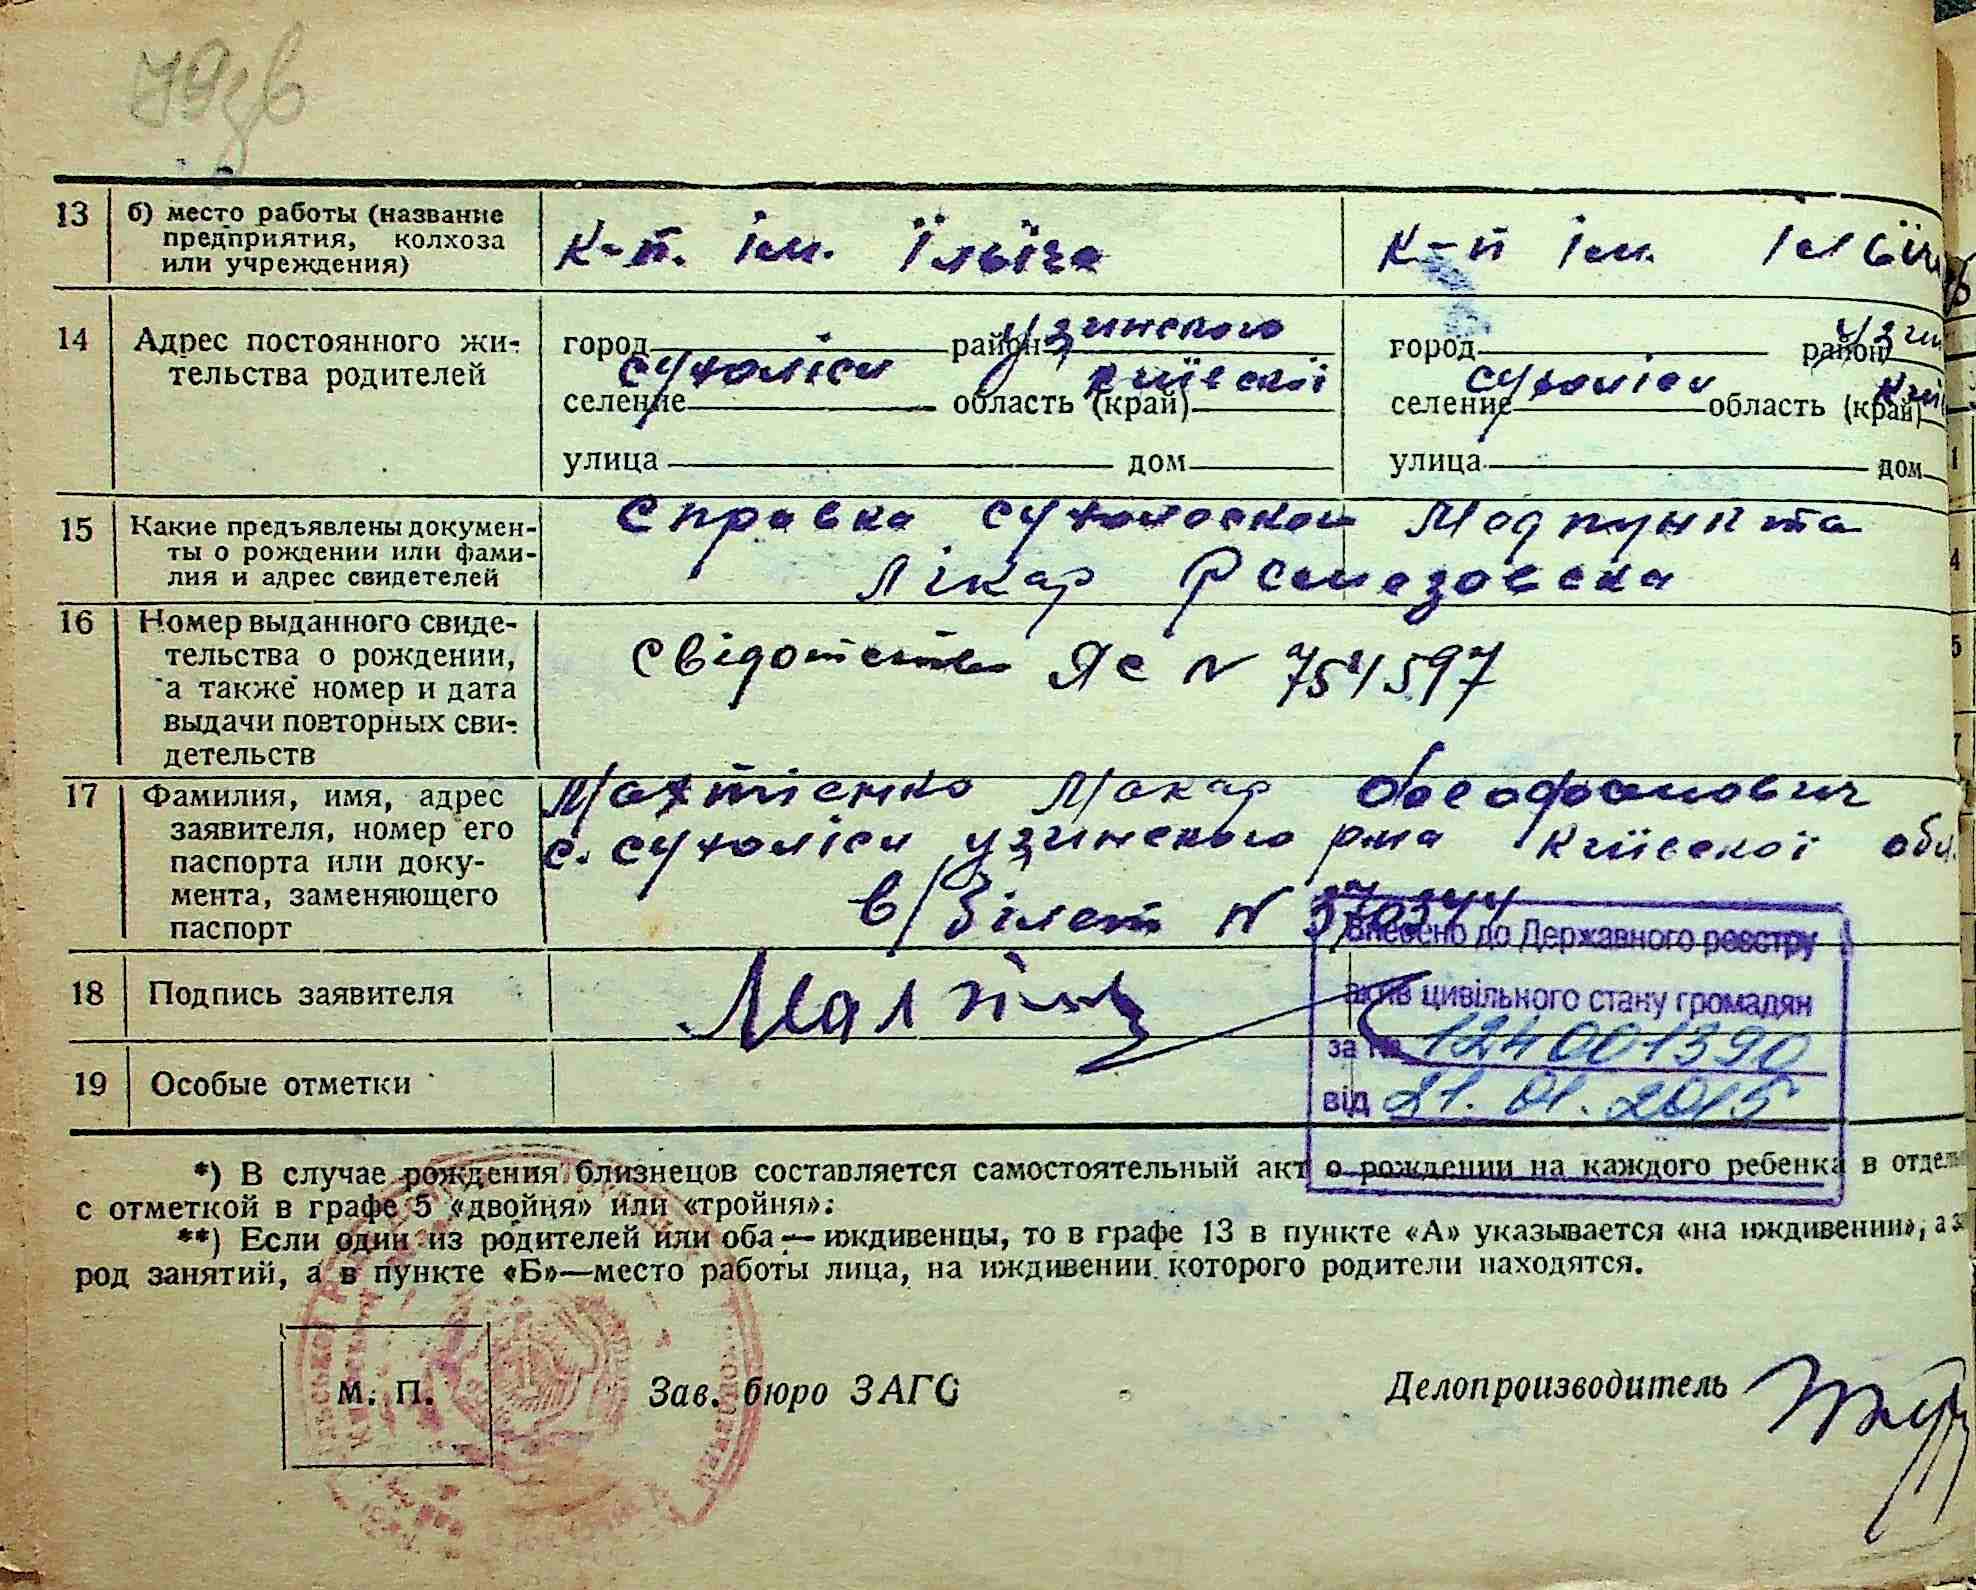 13 б) место работы (название предприятия, колхоза или учреждения) к-п. ім. Ільіча к-п ім.
14 Адрес постоянного жительства родителей
город район Узинского город район
селение Сухоліси область (край) Київскої селение Сухоліси область (край)
улица дом улица дом
15 Какие предъявлены документы о рождении или фамилия и адрес свидетелей Справка Медпункта
Лікар
16 Номер выданного свидетельства о рождении, а также номер и дата выдачи повторных свидетельств Свідотство ЯС N 754597
17 Фамилия, имя, адрес заявителя, номер его паспорта или документа, заменяющего паспорт Макар
с. Сухоліси Узинского р-на Київскої обл.
в/білет N
18 Подпись заявителя
19 Особые отметки
Внесено до Державного реєстру
актів цивільного стану громадян
за № 124001390
від 21.01.2015
*) В случае рождения близнецов составляется самостоятельный акт о рождении на каждого ребенка в
с отметкой в графе 5 «двойня» или «тройня».
**) Если один из родителей или оба — иждивенцы, то в графе 13 в пункте «А» указывается «на иждивении», а
род занятий, а в пункте «Б»—место работы лица, на иждивении которого родители находятся.
М. П. Зав. бюро ЗАГС Делопроизводитель